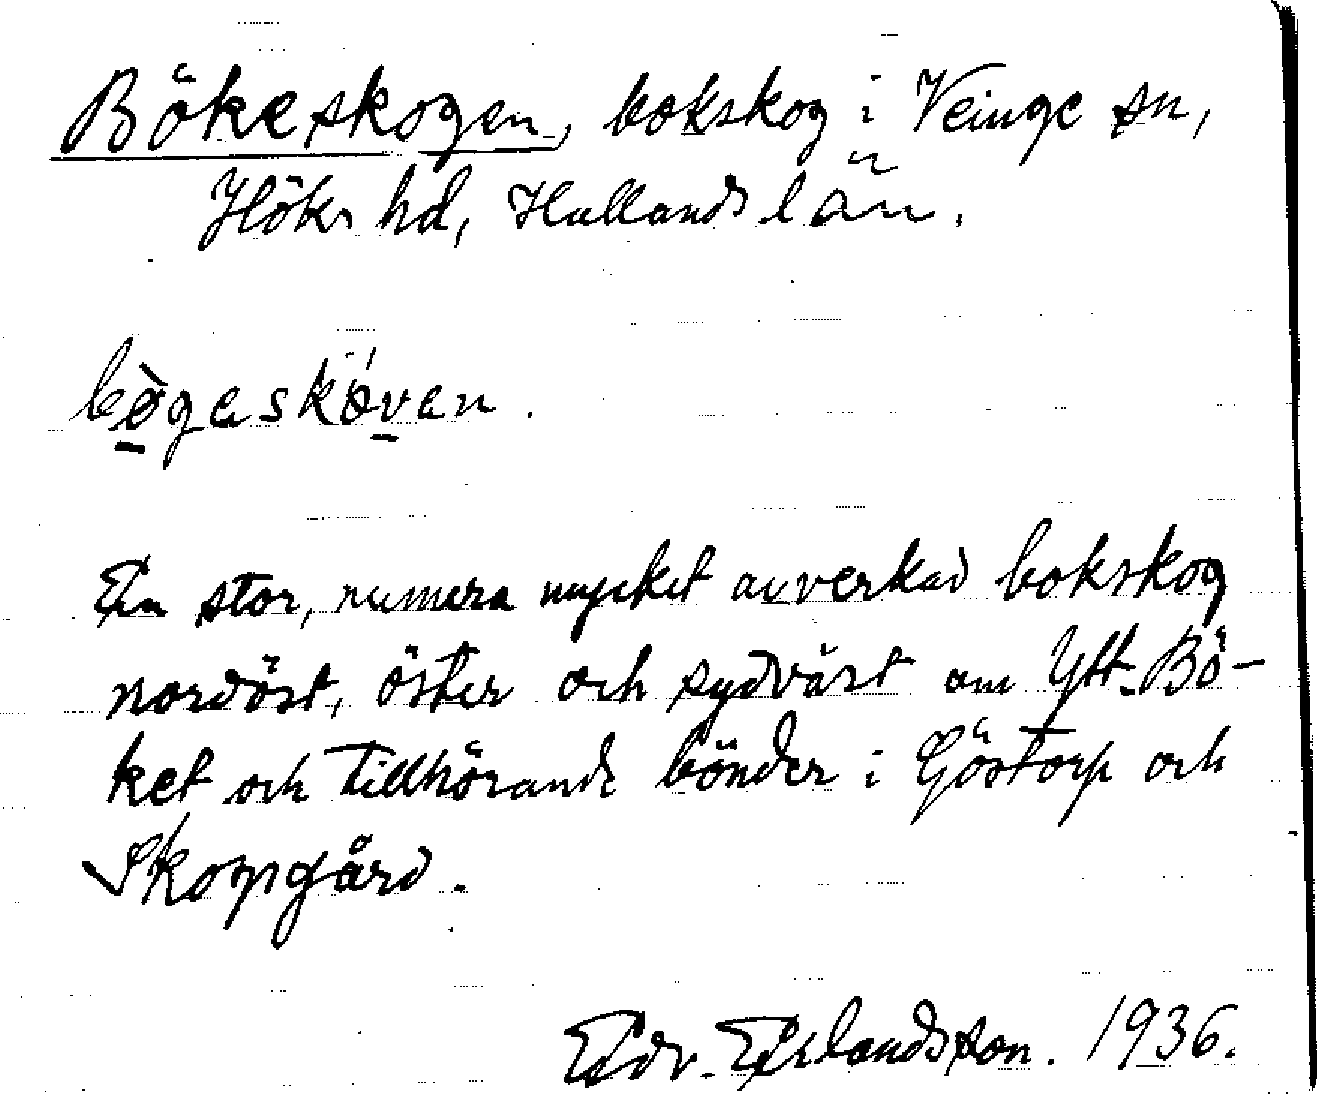 Bökeskogen, bokskog i Veinge sn,
Höks hd, Hallands län.
bø̀gaskóven.
En stor, numera mycket avverkad bokskog
nordöst, öster och sydväst om Ytt. Bö-
ket och tillhörande bönder i Göstorp och
Skogsgård.
Edv. Erlandsson. 1936.